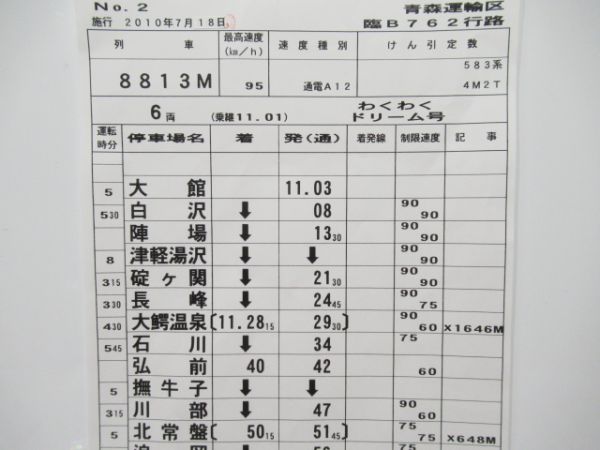 No.2 青森運輸区
施行 2010年7月18日 臨B762行路
列車 最高速度(km/h) 速度種別 けん引定数
8813M 95 通電A12 583系 4M2T
6両 (乗継11.01) わくわくドリーム号
運転時分 停車場名 着 発(通) 着発線 制限速度 記事
大館 11.03
5 白沢 ↓ 08 90 90
530 陣場 ↓ 1330 90 90
津軽湯沢 ↓ ↓ 90 90
8 碇ヶ関 ↓ 2130 90 90
315 長峰 ↓ 2445 90 75
330 大鰐温泉 〔11.2815 2930〕 90 60 X1646M
430 石川 ↓ 34 75
545 弘前 40 42 60
撫牛子 ↓ ↓
5 川部 ↓ 47 90 60
315 北常盤 〔 5015 5145〕 75 75 X648M
5